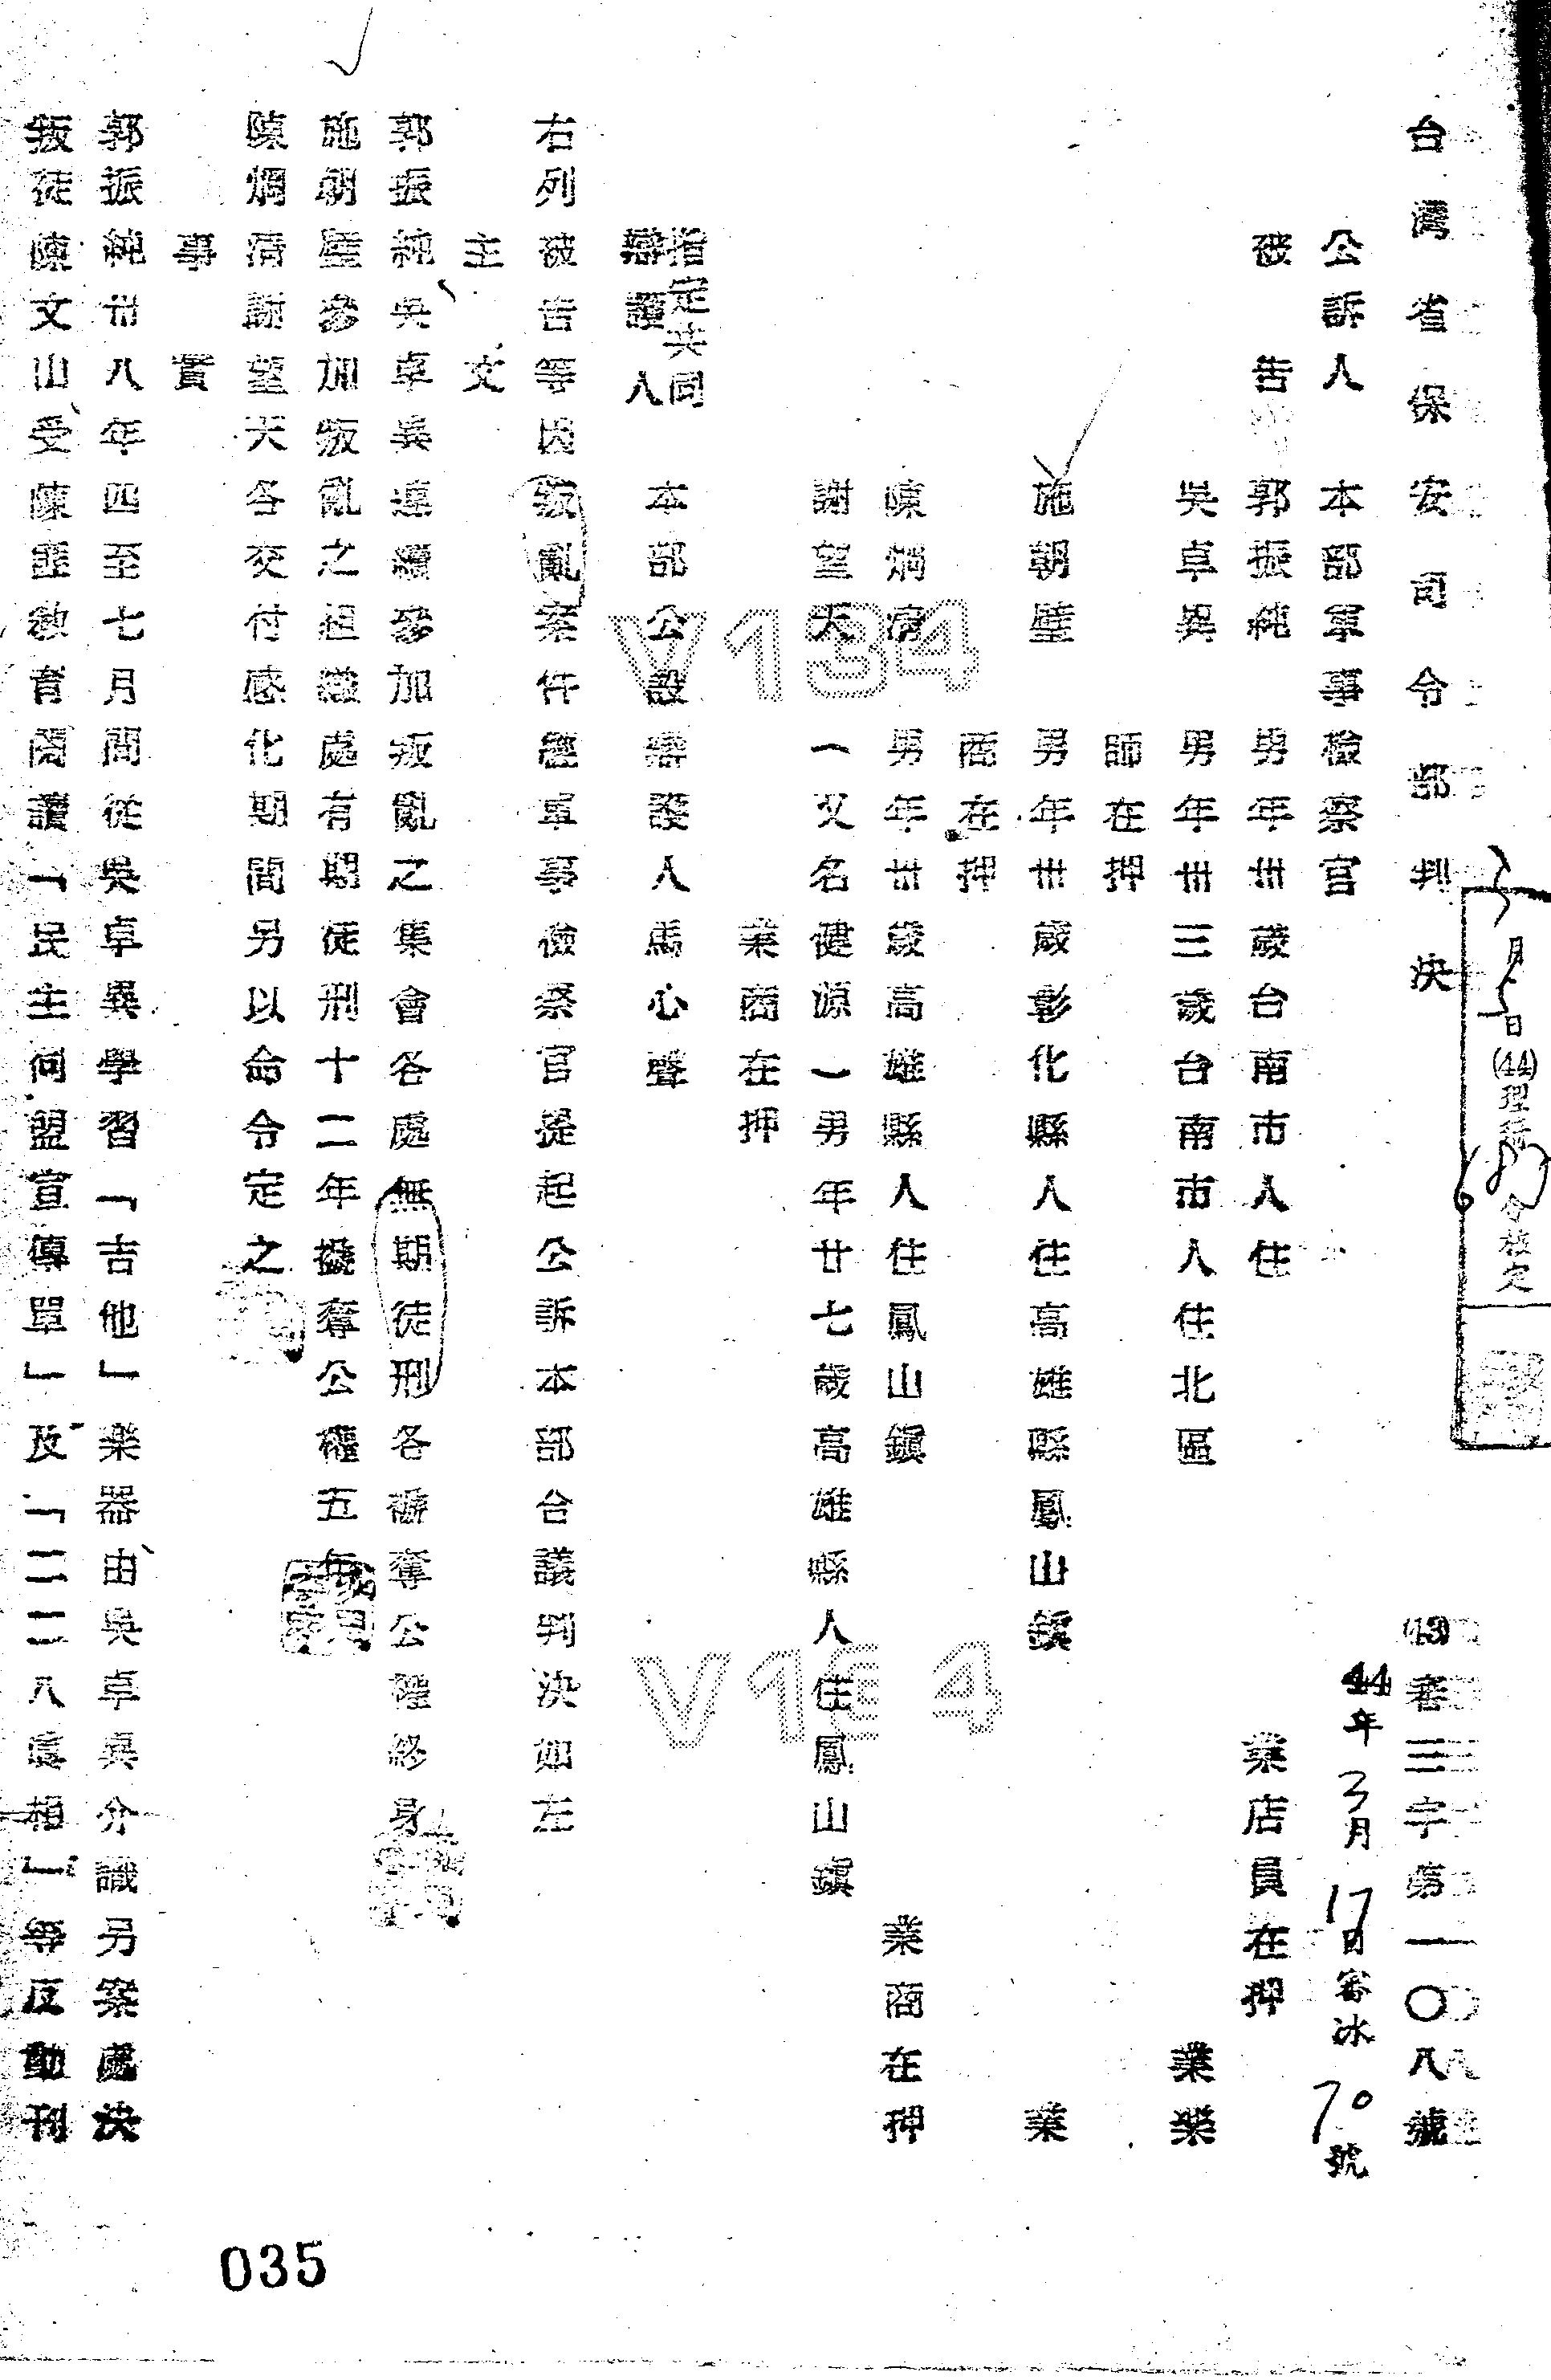 台灣省保安司令部判決
(43)審三字第一〇八號
44年3月17日審冰70號
月 日(44)理 令核定
公訴人 本部軍事檢察官
被告 郭振純 男年卅歲台南市人住 業店員在押
吳卓異 男年卅三歲台南市人住北區 業樂
師在押
施朝璧 男年卅歲彰化縣人住高雄縣鳳山鎮 業
商在押
陳烱清 男年卅歲高雄縣人住鳳山鎮 業商在押
謝望天(又名健源)男年廿七歲高雄縣人住鳳山鎮
業商在押
指定共同
辯護人 本部公設辯護人馬心聲
右列被告等因叛亂案件經軍事檢察官提起公訴本部合議判決如左
主文
郭振純吳卓異連續參加叛亂之集會各處無期徒刑各褫奪公權終身
施朝璧參加叛亂之組織處有期徒刑十二年褫奪公權五年
陳烱清謝望天各交付感化期間另以命令定之
事實
郭振純卅八年四至七月間從吳卓異學習「吉他」樂器由吳卓異介識另案處決
叛徒陳文山受陳匪教育閱讀「民主同盟宣傳單」及「二二八真相」等反動刊
035
V134
V134